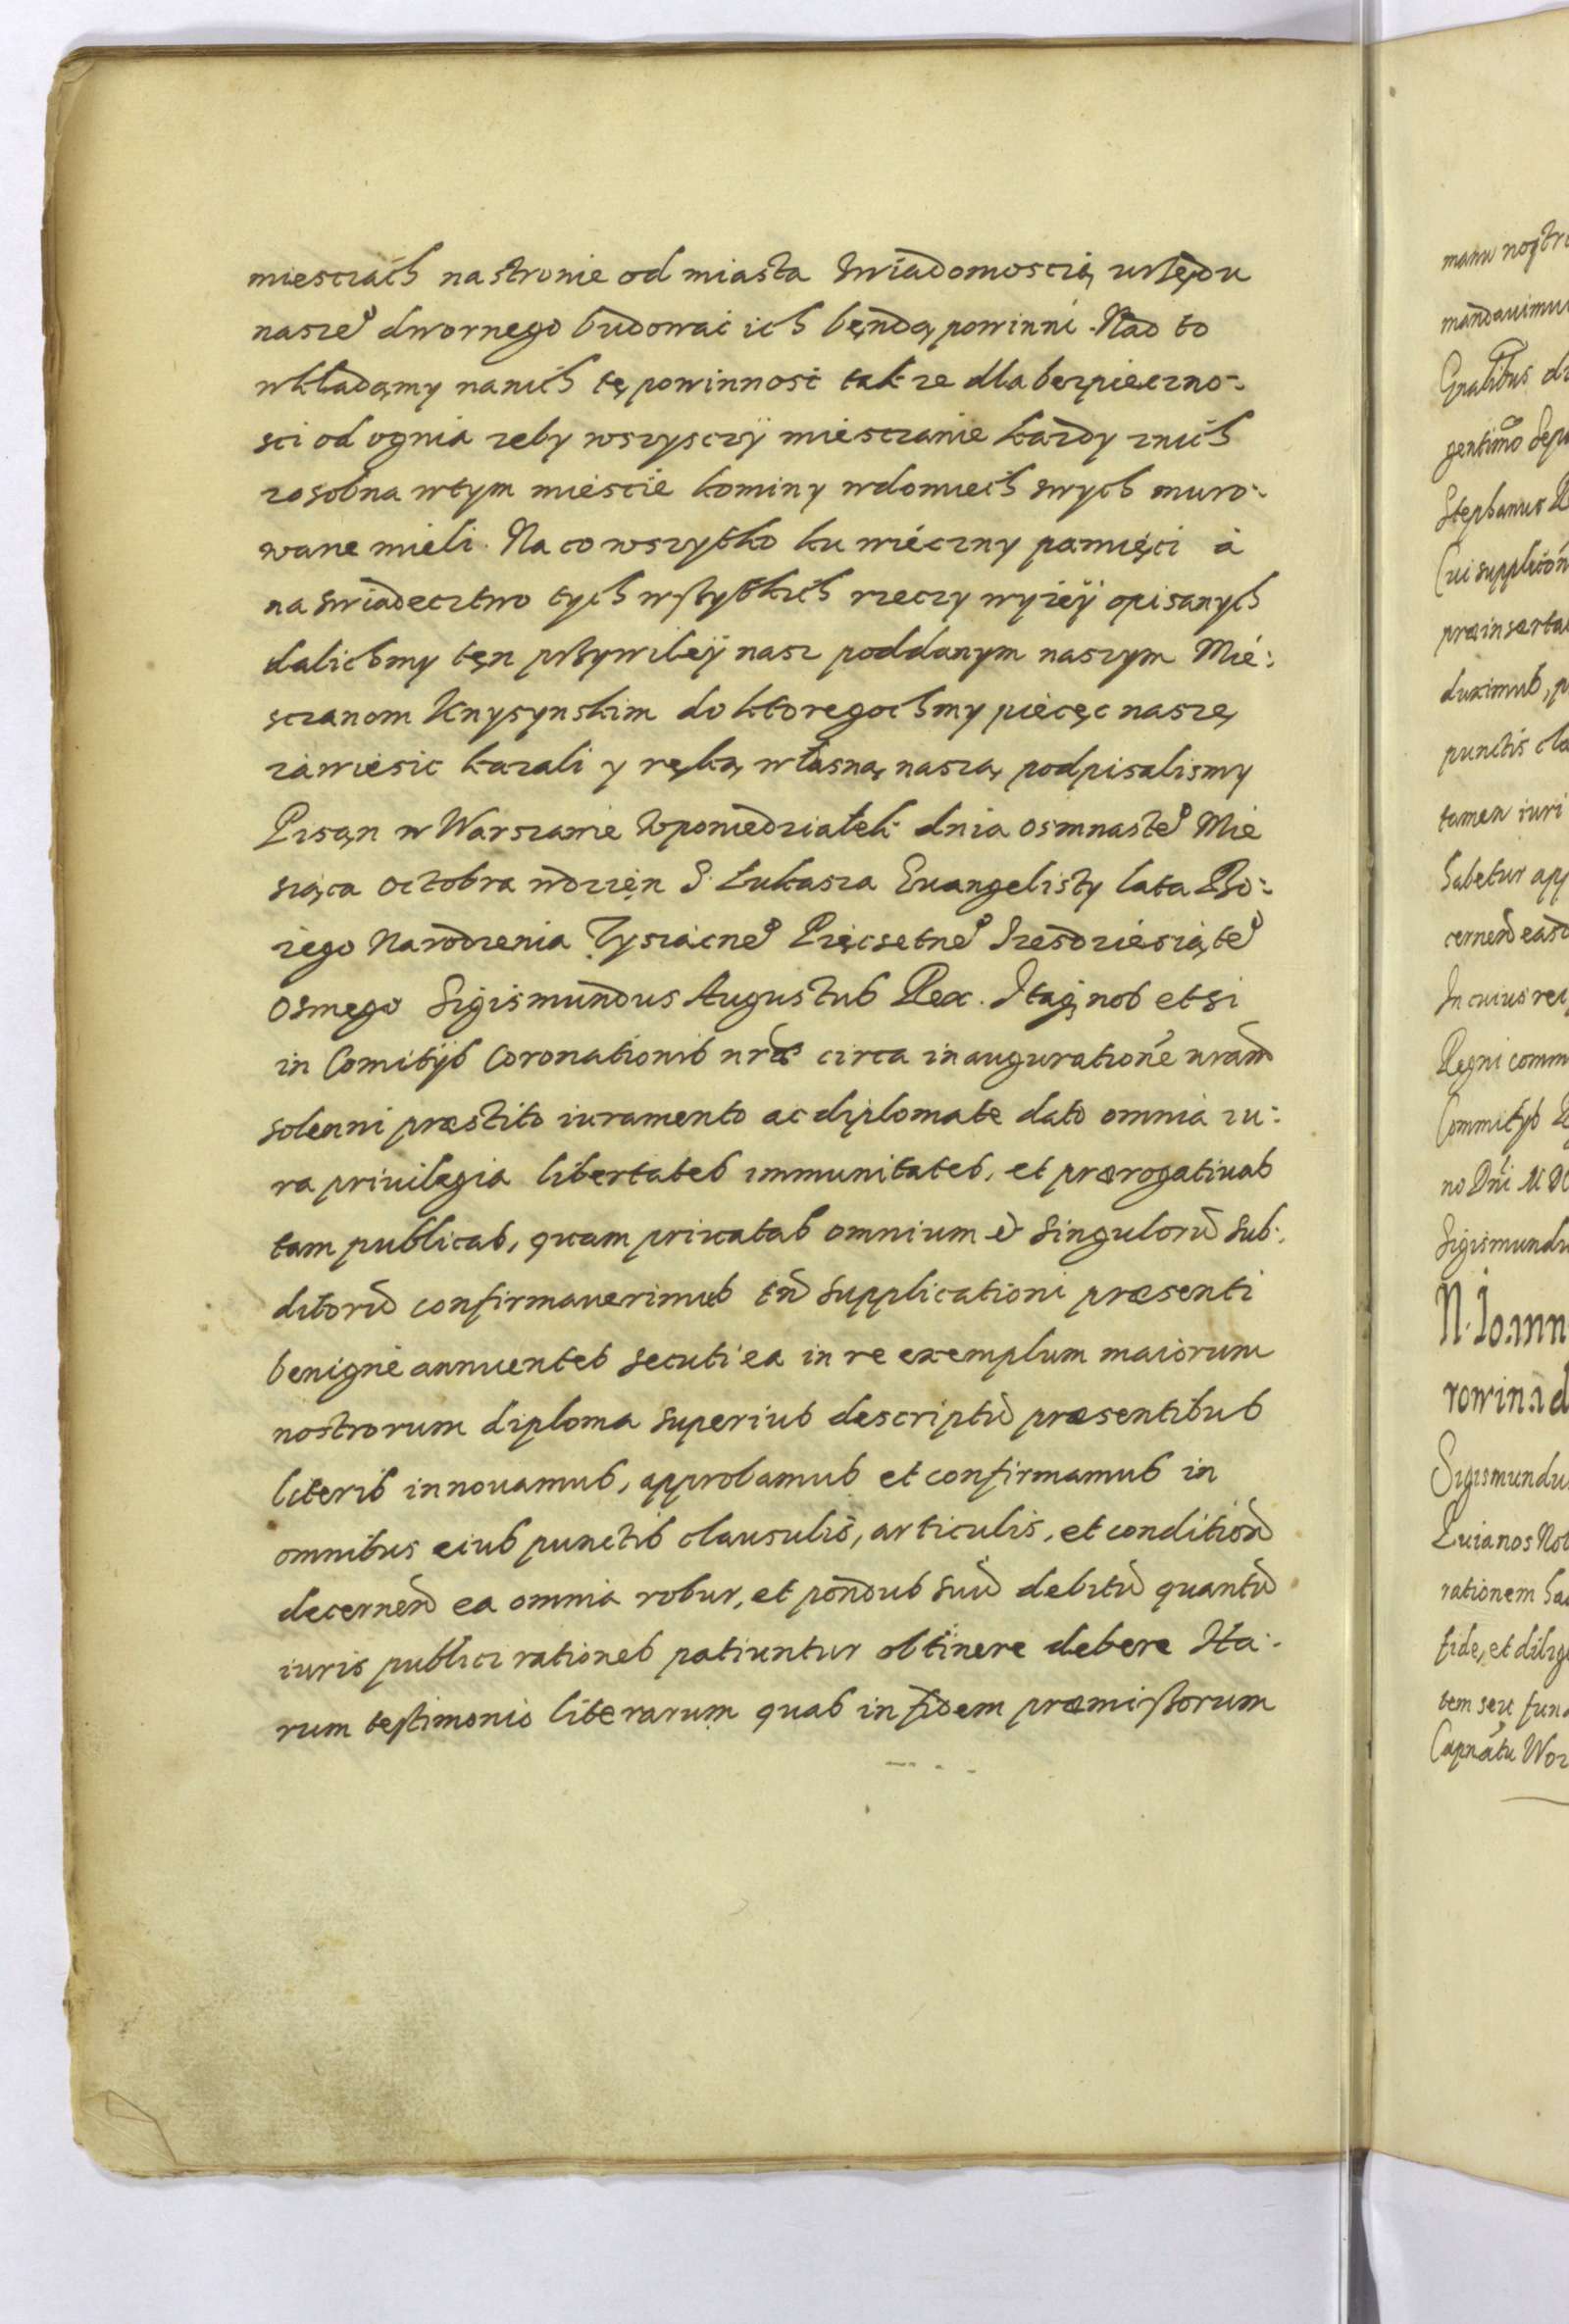 miesczach na stronie od miasta zwiadomoscią urzędu
nasze° dwornego budowac ich będą powinni. Nad to
wkładamy nanich tę powinnosc tak ze dla bezpieczno-
sci od ognia zeby wszysczÿ miesczanie kazdy znich
zosobna wtym miescie kominy wdomiech swych muro-
wane mieli. Na co wszytko ku wieczny pamięci à
na swiadecztwo tych wszytkich rzeczy wyzeÿ opisanych
dalichmy tęn przywileÿ nasz poddanym naszym Mie-
sczanom Knysynskim do ktoregochmy pieczęc naszę
zawiesic kazali y ręką własną naszą podpisalismy
Pisąn w Warszawie wponiedziałek dnia osmnaste° Mie
siąca Octobra wdzięn S. Łukasza Evangelisty lata Bo-
zego Narodzenia Tysiącne° Pięcsetne° Szesdziesiąte°
osmego Sigismundus Augustus Rex. Itaq nos etsi
in Comitijs Coronationis nrae circa inaugurationē nram
solenni praestito iuramento ac diplomate dato omnia iu-
ra privilegia libertates immunitates, et praerogativas
tam publicas, quam privatas omnium et singulorū sub-
ditorū confirmaverimus tñ supplicationi praesenti
benigne annuentes secuti ea in re exemplum maiorum
nostrorum diploma superius descriptū praesentibus
literis innovamus, approbamus et confirmamus in
omnibus eius punctis clausulis, articulis, et condition
decernen ea omnia robur, et pondus suū debitū quantū
iuris publici rationes patiuntur obtinere debere Ha-
rum testimonio literarum quas in fidem praemissorum
manu nostra
mandavimus
gentimo
Stephanus
Cui
praeinserta
duximus,
punctis cla
tamen iuri
habetur app
cernen eas
In cuius rei
Regni comm
Commitys
no Dni
Sigismundu
N. Joann
Sigismundu
rationem ha
fide, et dilig
tem seu fun